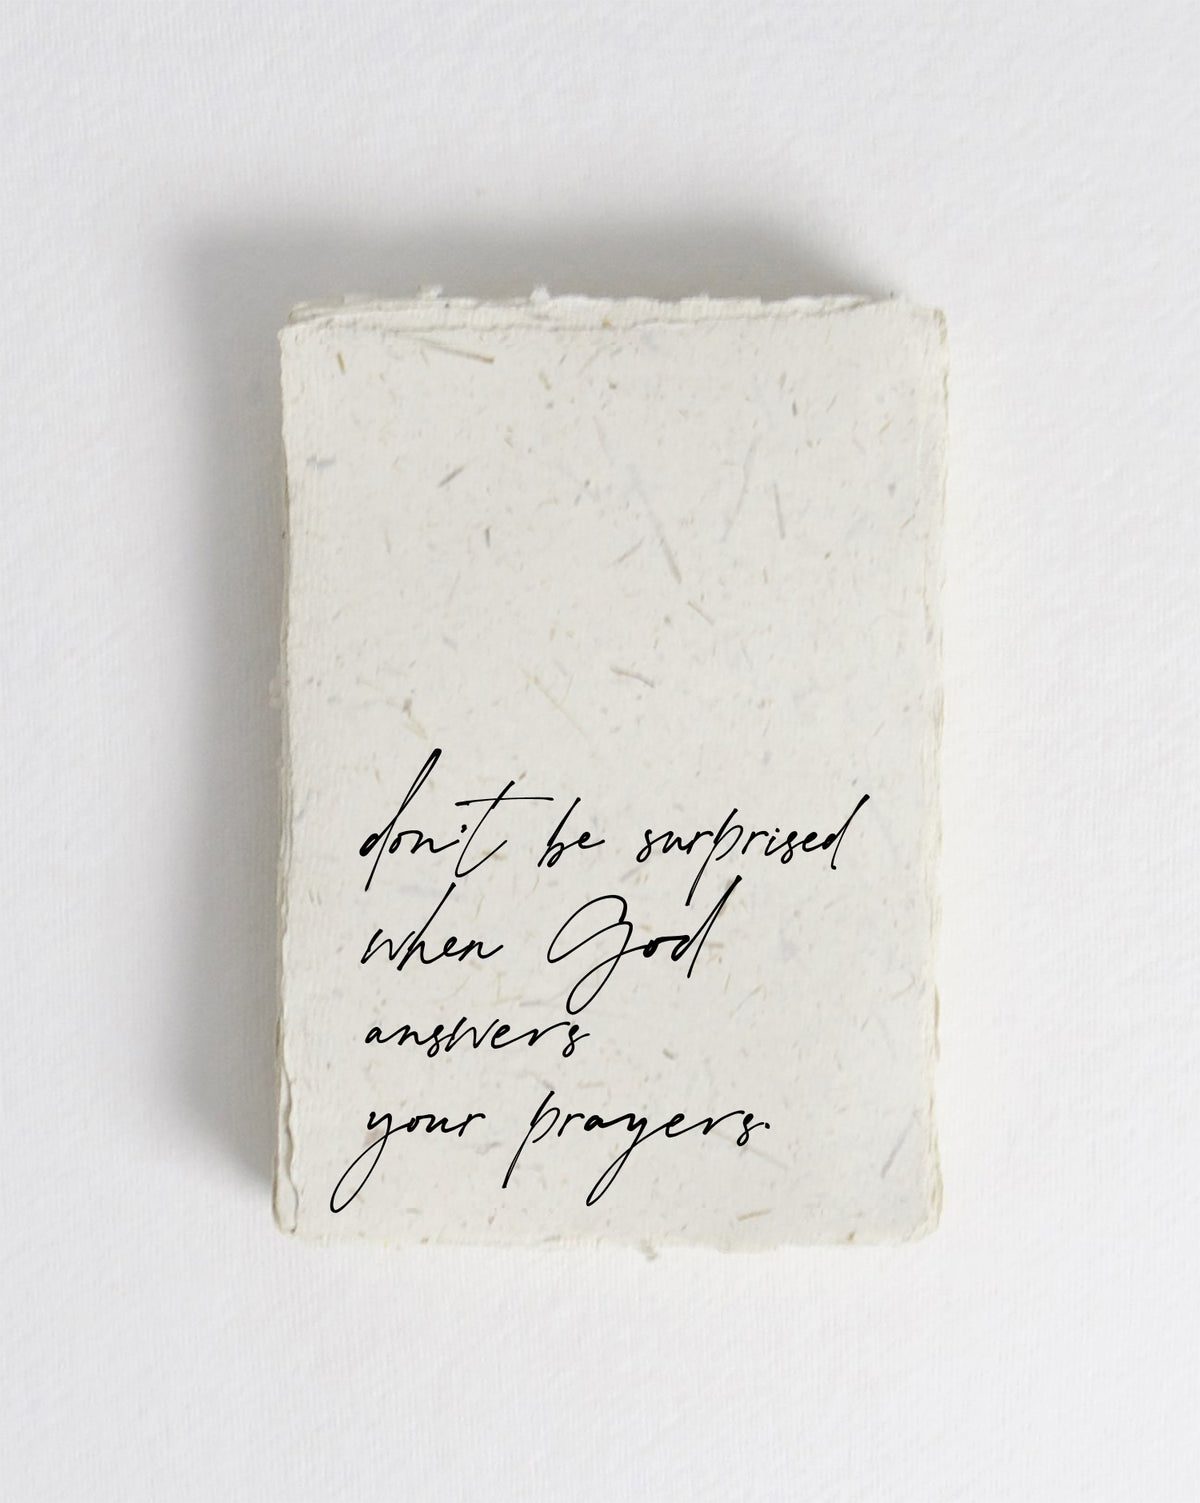 don't be surprised
when God
answers
your prayers.